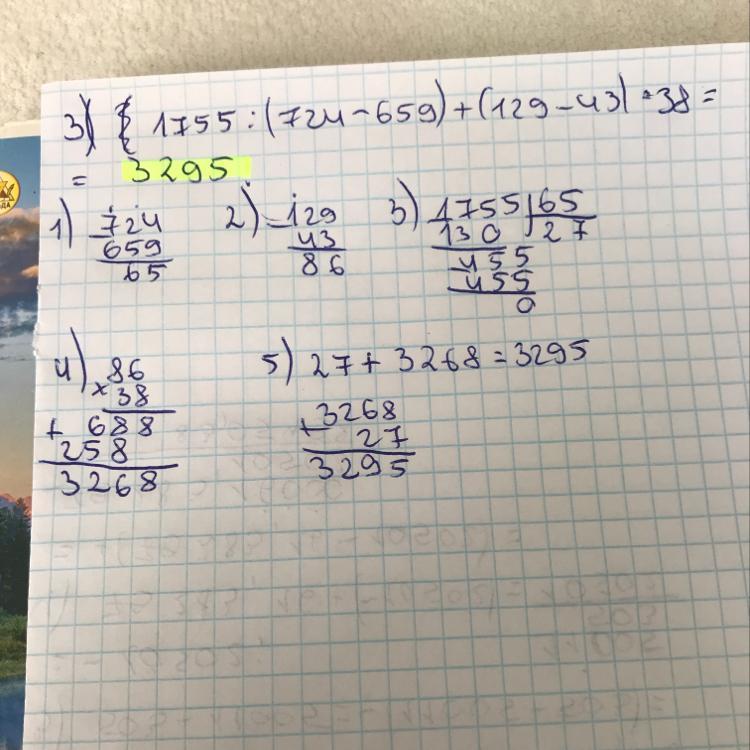 3) 1755 : (724 - 659) + (129 - 43) • 38 =
= 3295
1) 724
659
65
2) - 129
43
86
3) 1755 | 65
130 27
455
455
0
4) 86
× 38
+ 688
258
3268
5) 27 + 3268 = 3295
+ 3268
27
3295